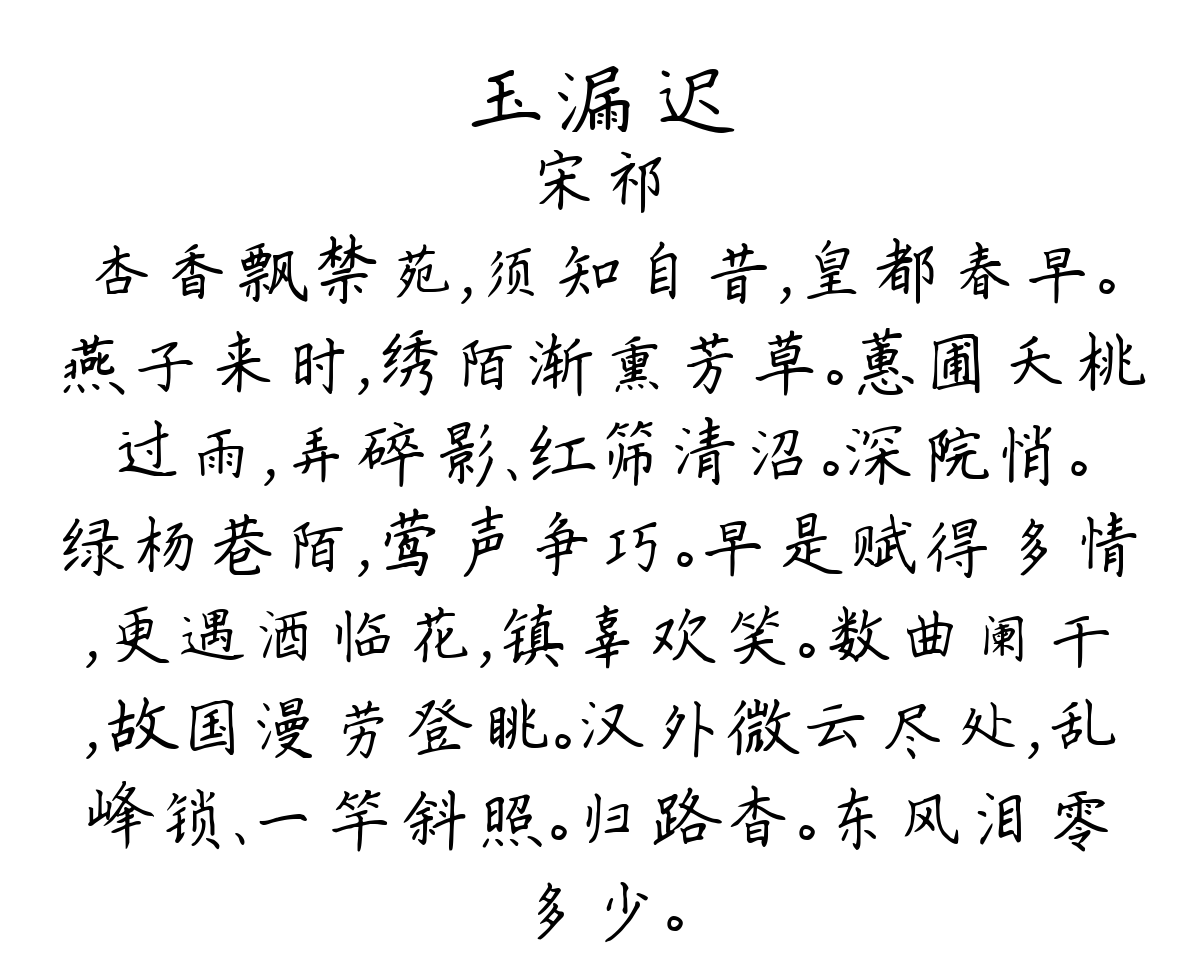 玉漏迟
宋祁
杏香飘禁苑,须知自昔,皇都春早。
燕子来时,绣陌渐熏芳草。蕙圃夭桃
过雨,弄碎影、红筛清沼。深院悄。
绿杨巷陌,莺声争巧。早是赋得多情
,更遇酒临花,镇辜欢笑。数曲阑干
,故国漫劳登眺。汉外微云尽处,乱
峰锁、一竿斜照。归路杳。东风泪零
多少。